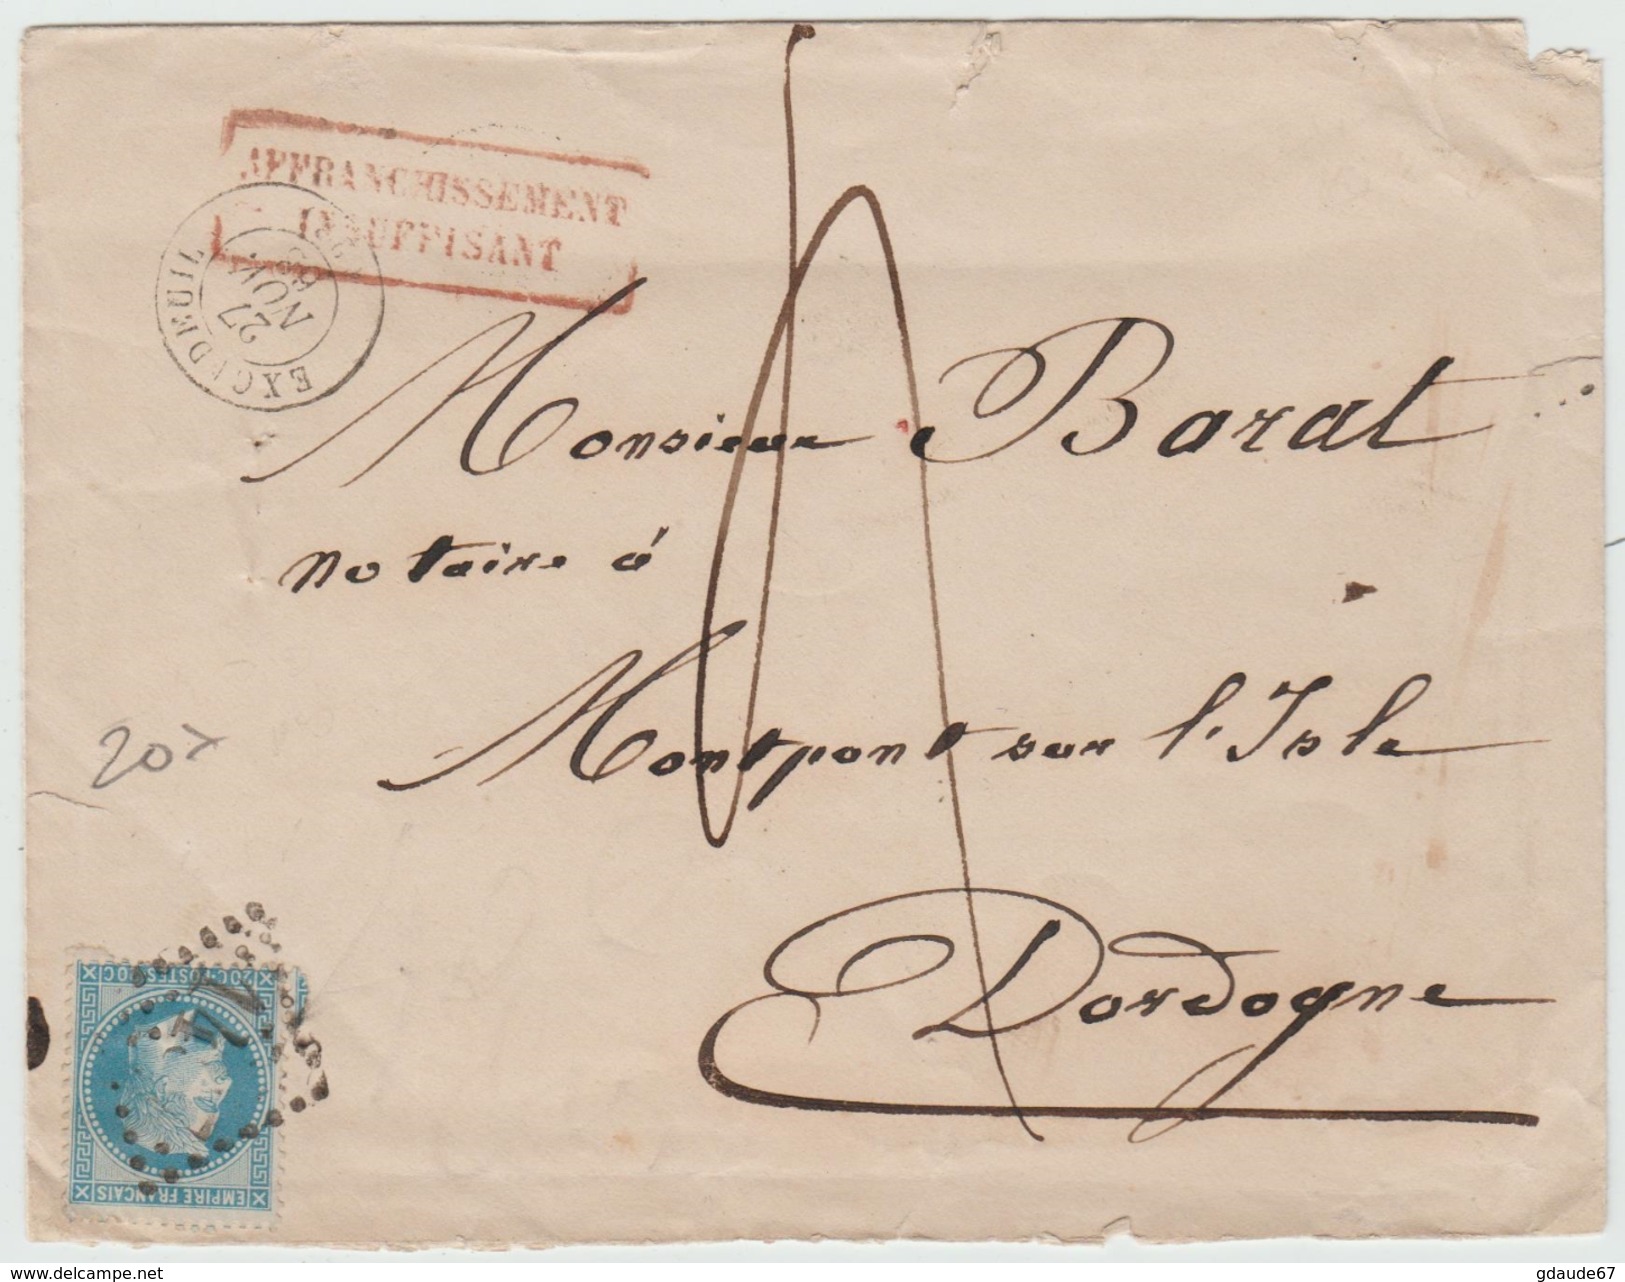 AFFRANCHISSEMENT
INSUFFISANT
EXCIDEUIL
27
NOV.
68
Monsieur Barat
notaire à
Montpont sur l'Isle
Dordogne
4
20x
20C POSTES 20C
EMPIRE FRANCAIS
www.delcampe.net
gdaude67